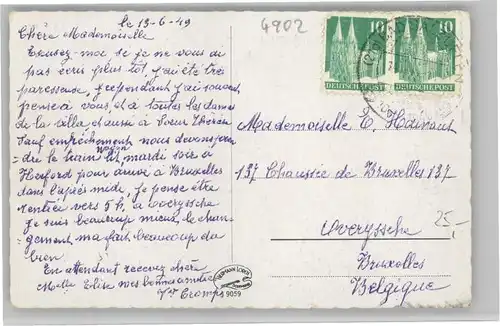 le 13-6-49
4902
Chère Mademoiselle
Excusez-moi se je ne vous ai
pas écris plus tôt j'ai été très
paresseuse, cependant j'ai souvent
pensé à vous, et à toutes les dames
de la villa et aussi à Soeur Thérèse
Sauf empêchement nous devons pren-
dre le train wagon lit, mardi soir à
Herford pour arrivé à Bruxelles
dans l'après midi, je pense être
rentrée vers 5 h, à Overyssche
je suis beaucoup mieux, le chan-
gement m'a fait beaucoup du
bien
En attendant recevez chère
Melle Elise mes bonnes amitiés
Cromps
10 10
DEUTSCHE POST DEUTSCHE POST
Mademoiselle E. Hainaut
137 Chaussée de Bruxelles 137
Overyssche
25,-
Bruxelles
Belgique
HERMANN LORCH
9059